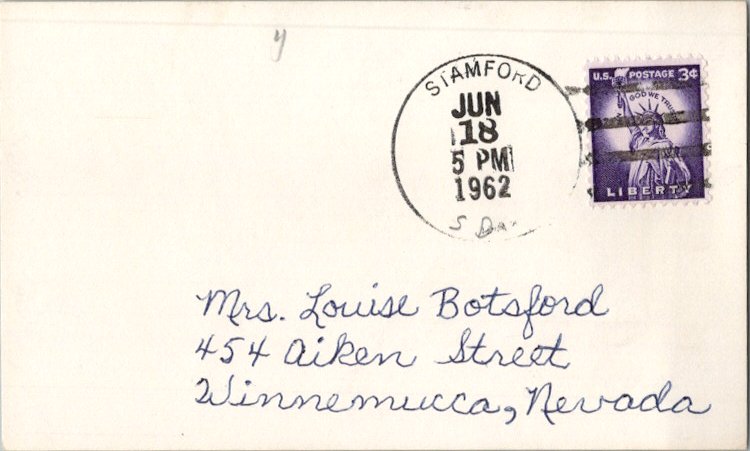 y
STAMFORD
JUN
18
5 PM
1962
S Dak
U.S. POSTAGE 3¢
IN GOD WE TRUST
LIBERTY
Mrs. Louise Botsford
454 Aiken Street
Winnemucca, Nevada